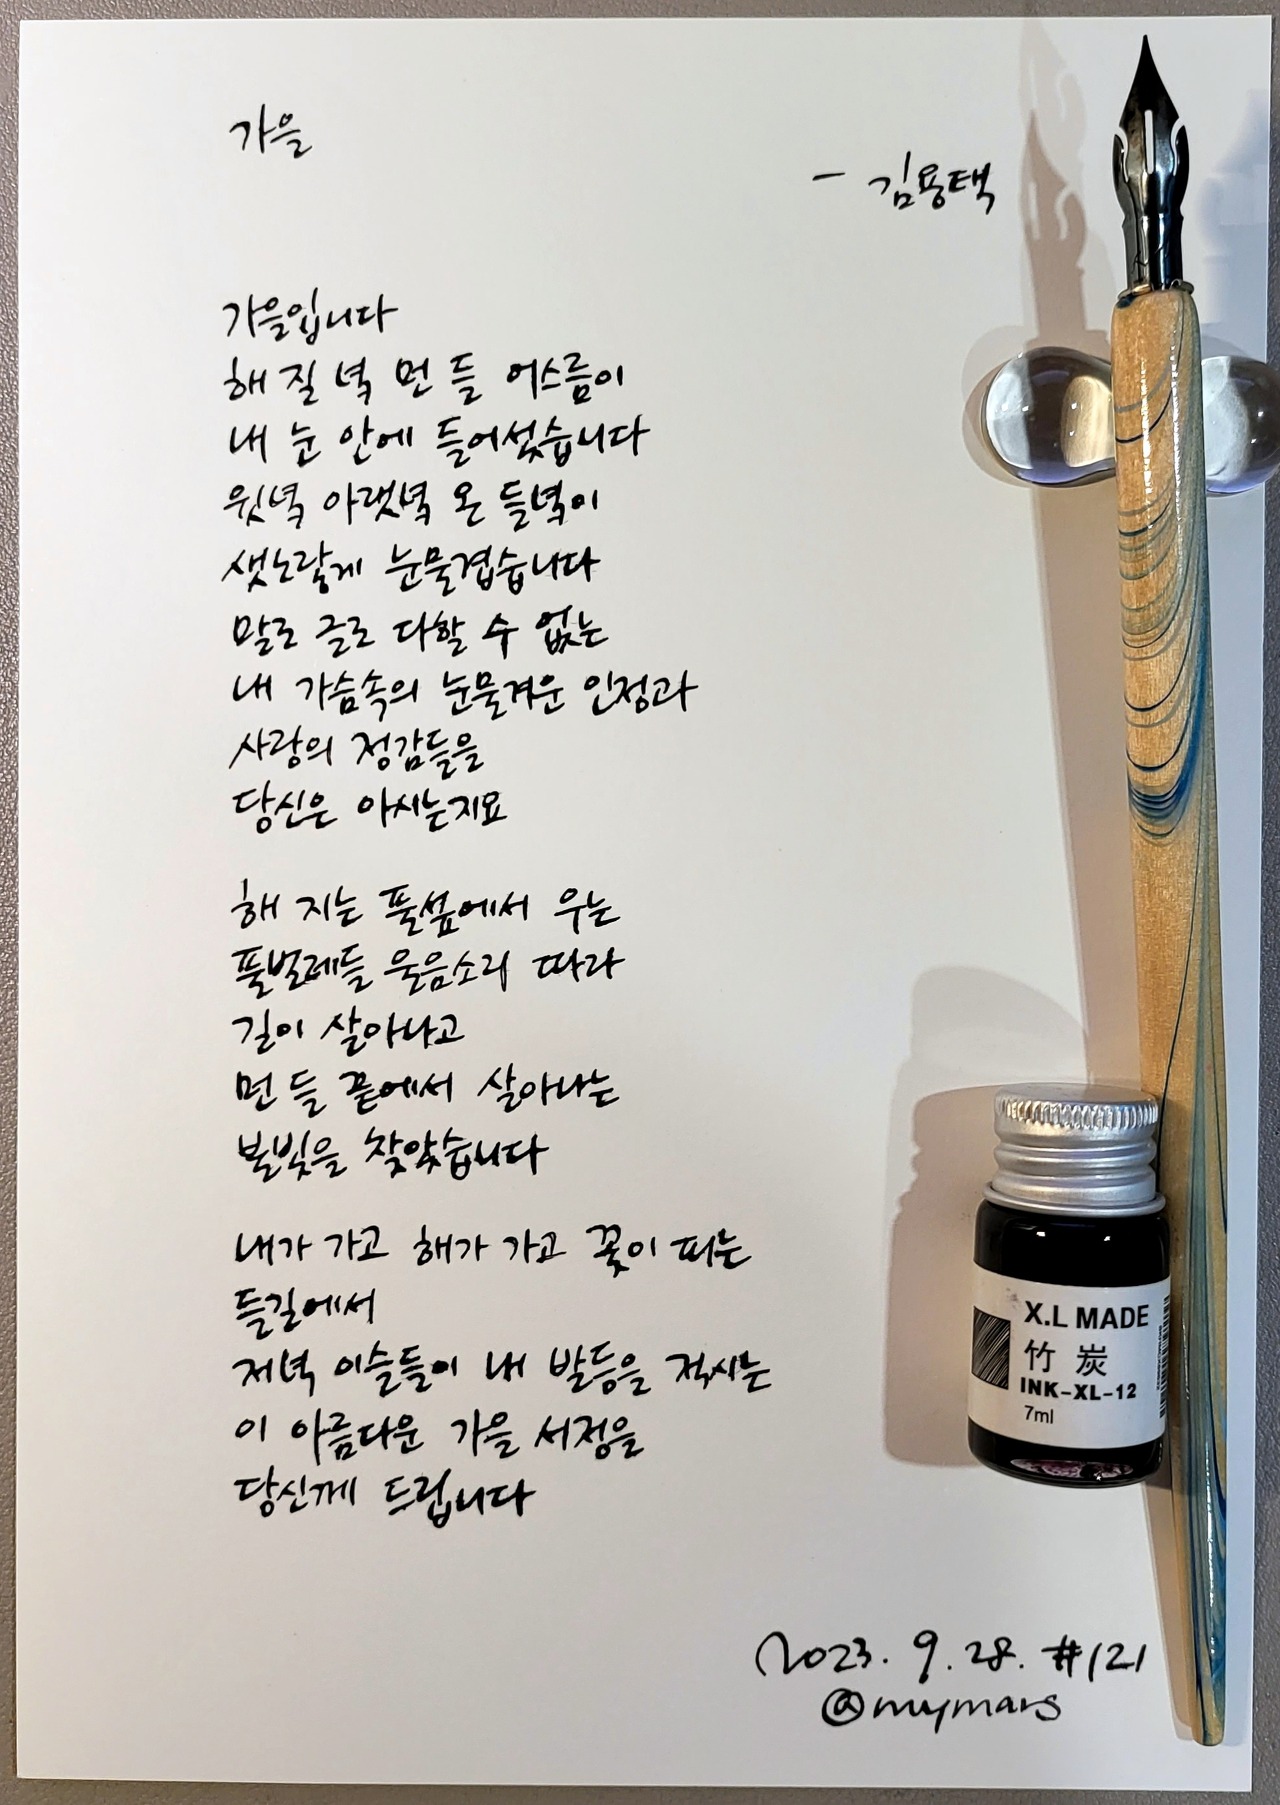 가을
- 김용택
가을입니다
해질녘 먼 들 어스름이
내 눈 안에 들어섰습니다
윗녘 아랫녘 온 들녘이
샛노랗게 눈물겹습니다
말로 글로 다할 수 없는
내 가슴속의 눈물겨운 인정과
사랑의 정감들을
당신은 아시는지요
해 지는 풀섶에서 우는
풀벌레들 울음소리 따라
길이 살아나고
먼 들 끝에서 살아나는
불빛을 찾았습니다
내가 가고 해가 가고 꽃이 피는
들길에서
저녁 이슬들이 내 발등을 적시는
이 아름다운 가을 서정을
당신께 드립니다
2023. 9. 28. #121
@mymars
X.L MADE
竹炭
INK-XL-12
7ml